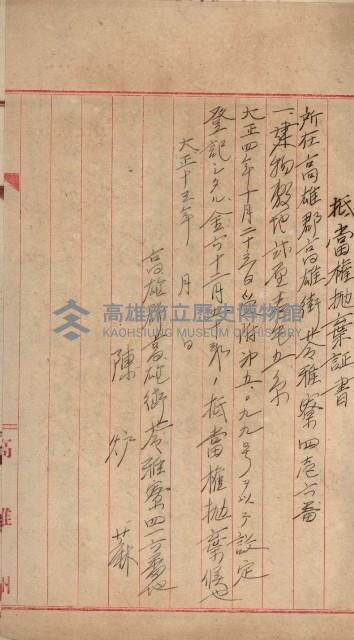 抵當權抛棄証書
所在高雄郡高雄街苓雅寮四壱六番
一、建物敷地
大正四年十月二十三日受附第五〇九九号ヲ以テ設定
登記シタル金六十二円ノ抵當權抛棄候也
大正十五年 月 日
高雄 高雄街苓雅寮四一六番地
陳 蘇
高雄市立歷史博物館
KAOHSIUNG MUSEUM OF HISTORY
高雄州